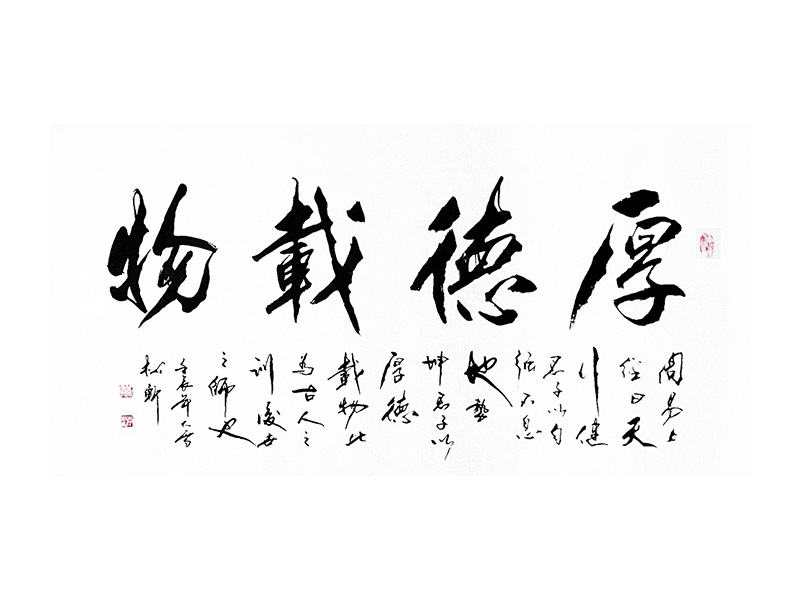 厚德載物
周易上
經曰天
行健
君子以自
強不息
地勢
坤君子以
厚德
載物此
為古人之
訓後世
之師也
壬辰年大雪
松軒